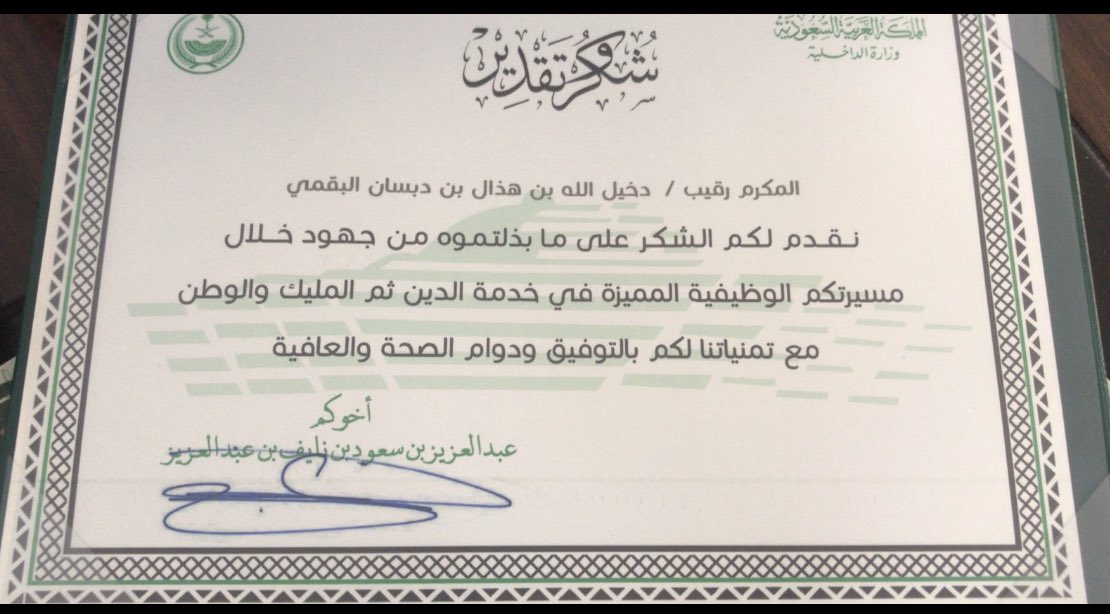 المملكة العربية السعودية
وزارة الداخلية
شكر وتقدير
المكرم رقيب / دخيل الله بن هذال بن دبسان البقمي
نقدم لكم الشكر على ما بذلتموه من جهود خلال
مسيرتكم الوظيفية المميزة في خدمة الدين ثم المليك والوطن
مع تمنياتنا لكم بالتوفيق ودوام الصحة والعافية
أخوكم
عبدالعزيز بن سعود بن نايف بن عبدالعزيز